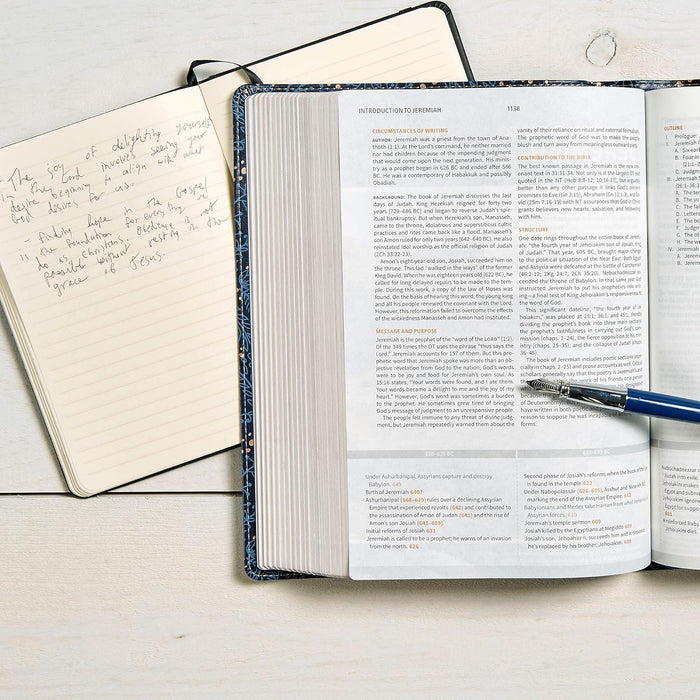 The joy of delighting yourself
in the Lord involves seeing your
desire beginning to align with what
God desires for us.
finding hope in the Gospel
is the foundation for everything we
do as Christians. Obedience is not
possible without resting in the
grace of Jesus.
INTRODUCTION TO JEREMIAH 1138
CIRCUMSTANCES OF WRITING
AUTHOR: Jeremiah was a priest from the town of Ana-
thoth (1:1). At the Lord's command, he neither married
nor had children because of the impending judgment
that would come upon the next generation. His minis-
try as a prophet began in 626 BC and ended after 586
BC. He was a contemporary of Habakkuk and possibly
Obadiah.
BACKGROUND: The book of Jeremiah discusses the last
days of Judah. King Hezekiah reigned for forty-two
years (729–686 BC) and began to reverse Judah's spir-
itual bankruptcy. But when Hezekiah's son, Manasseh,
came to the throne, idolatrous and superstitious cultic
practices and rites came back like a flood. Manasseh's
son Amon ruled for only two years (642–640 BC). He also
reinstated idol worship as the official religion of Judah
(2Ch 33:22-23).
Amon's eight-year-old son, Josiah, succeeded him on
the throne. This lad "walked in the ways" of the former
King David. When he was eighteen years old (622 BC), he
called for long-delayed repairs to be made to the tem-
ple. During this work, a copy of the law of Moses was
found. On the basis of hearing this word, the young king
and all his people renewed the covenant with the Lord.
However, this reformation failed to overcome the effects
of the wickedness Manasseh and Amon had instituted.
MESSAGE AND PURPOSE
Jeremiah is the prophet of the "word of the LORD" (1:2).
Of the 349 times the OT uses the phrase "thus says the
Lord," Jeremiah accounts for 157 of them. But this pro-
phetic word that Jeremiah spoke was more than an ob-
jective revelation from God to the nation; God's words
were to be joy and food for Jeremiah's own soul. As
15:16 states, "Your words were found, and I ate them.
Your words became a delight to me and the joy of my
heart." However, God's word was sometimes a burden
to the prophet. He sometimes grew tired of bringing
God's message of judgment to an unresponsive people.
The people felt immune to any threat of divine judg-
ment, but Jeremiah repeatedly warned them about the
vanity of their reliance on ritual and external formalism.
The prophetic word of God was to make the people
blush and turn away from meaningless outward piety.
CONTRIBUTION TO THE BIBLE
The best known passage in Jeremiah is the new cove-
nant text in 31:31-34. Not only is it the largest OT text
quoted in the NT (Heb 8:8-12; 10:16-17), but equally
better than any other passage it links God's ancient
promises to Eve (Gn 3:15), Abraham (Gn 12:2-3), and Da-
vid (2Sm 7:16-19) with NT assurances that God in Christ
grants believers new hearts, salvation, and fellowship
with him.
STRUCTURE
One date rings throughout the entire book of Jeremiah:
"the fourth year of Jehoiakim son of Josiah, king
of Judah." That year, 605 BC, brought major change
to the political situation of the Near East. Both Egypt
and Assyria were defeated at the battle of Carchemish
(46:2-12; 2Kg 24:7, 2Ch 35:20). Nebuchadnezzar as-
cended the throne of Babylon. In that same year God
instructed Jeremiah to put his prophecies into writ-
ing—a final test of King Jehoiakim's responsiveness to
the word of God.
This significant dateline, "the fourth year of Je-
hoiakim," was placed at 25:1; 36:1, and 45:1, thereby
dividing the prophet's book into three main sections:
the prophet's faithfulness in carrying out God's com-
mission (chaps. 2–24), the fierce opposition to his min-
istry (chaps. 25–35), and the collapse of Judah (chaps.
36–45).
The book of Jeremiah includes poetic sections (espe-
cially in chaps. 2–25) and prose accounts as well. Critical
scholars generally say that the poetry is Jeremiah's
work of his friends or a
because
of Deuteronomy
have written in both poetic
reason to suppose he was incapable of
forms.
650–625 BC
625–605 BC
Under Ashurbanipal, Assyrians capture and destroy
Babylon. 649
Birth of Jeremiah 640?
Ashurbanipal (668–629) rules over a declining Assyrian
Empire that experienced revolts (642) and contributed to
the assassination of Amon of Judah (641) and the rise of
Amon's son Josiah (641–609).
Initial reforms of Josiah 631
Jeremiah is called to be a prophet; he warns of an invasion
from the north. 626
Second phase of Josiah's reforms when the book of the law
is found in the temple 622
Under Nabopolassar (626–605), Asshur and Nineveh fall
marking the end of the Assyrian Empire. 612
Babylonians and Medes take Harran from what remained
Assyrian forces. 610
Jeremiah's temple sermon 609
Josiah killed by the Egyptians at Megiddo 609
Josiah's son, Jehoahaz II, succeeds him and in
he's replaced by his brother, Jehoiakim. 609
OUTLINE
I. Prologue
II. Jeremiah
A. Six early
B. Four
(21:1–
C. Judgm
III. Jeremiah
(26:1–36:3
A. The
B. The yo
C. The fal
D. Letter
E. The
F. Judgm
G. The
H. The
IV. Jeremiah
A. Jere
B. Jere
Nebuchadnezzar
Judah into exile.
Jeremiah makes
Egypt and sub
Jehoiakim ignore
Egypt for suppo
601
A reinforced
Jehoiakim dies.